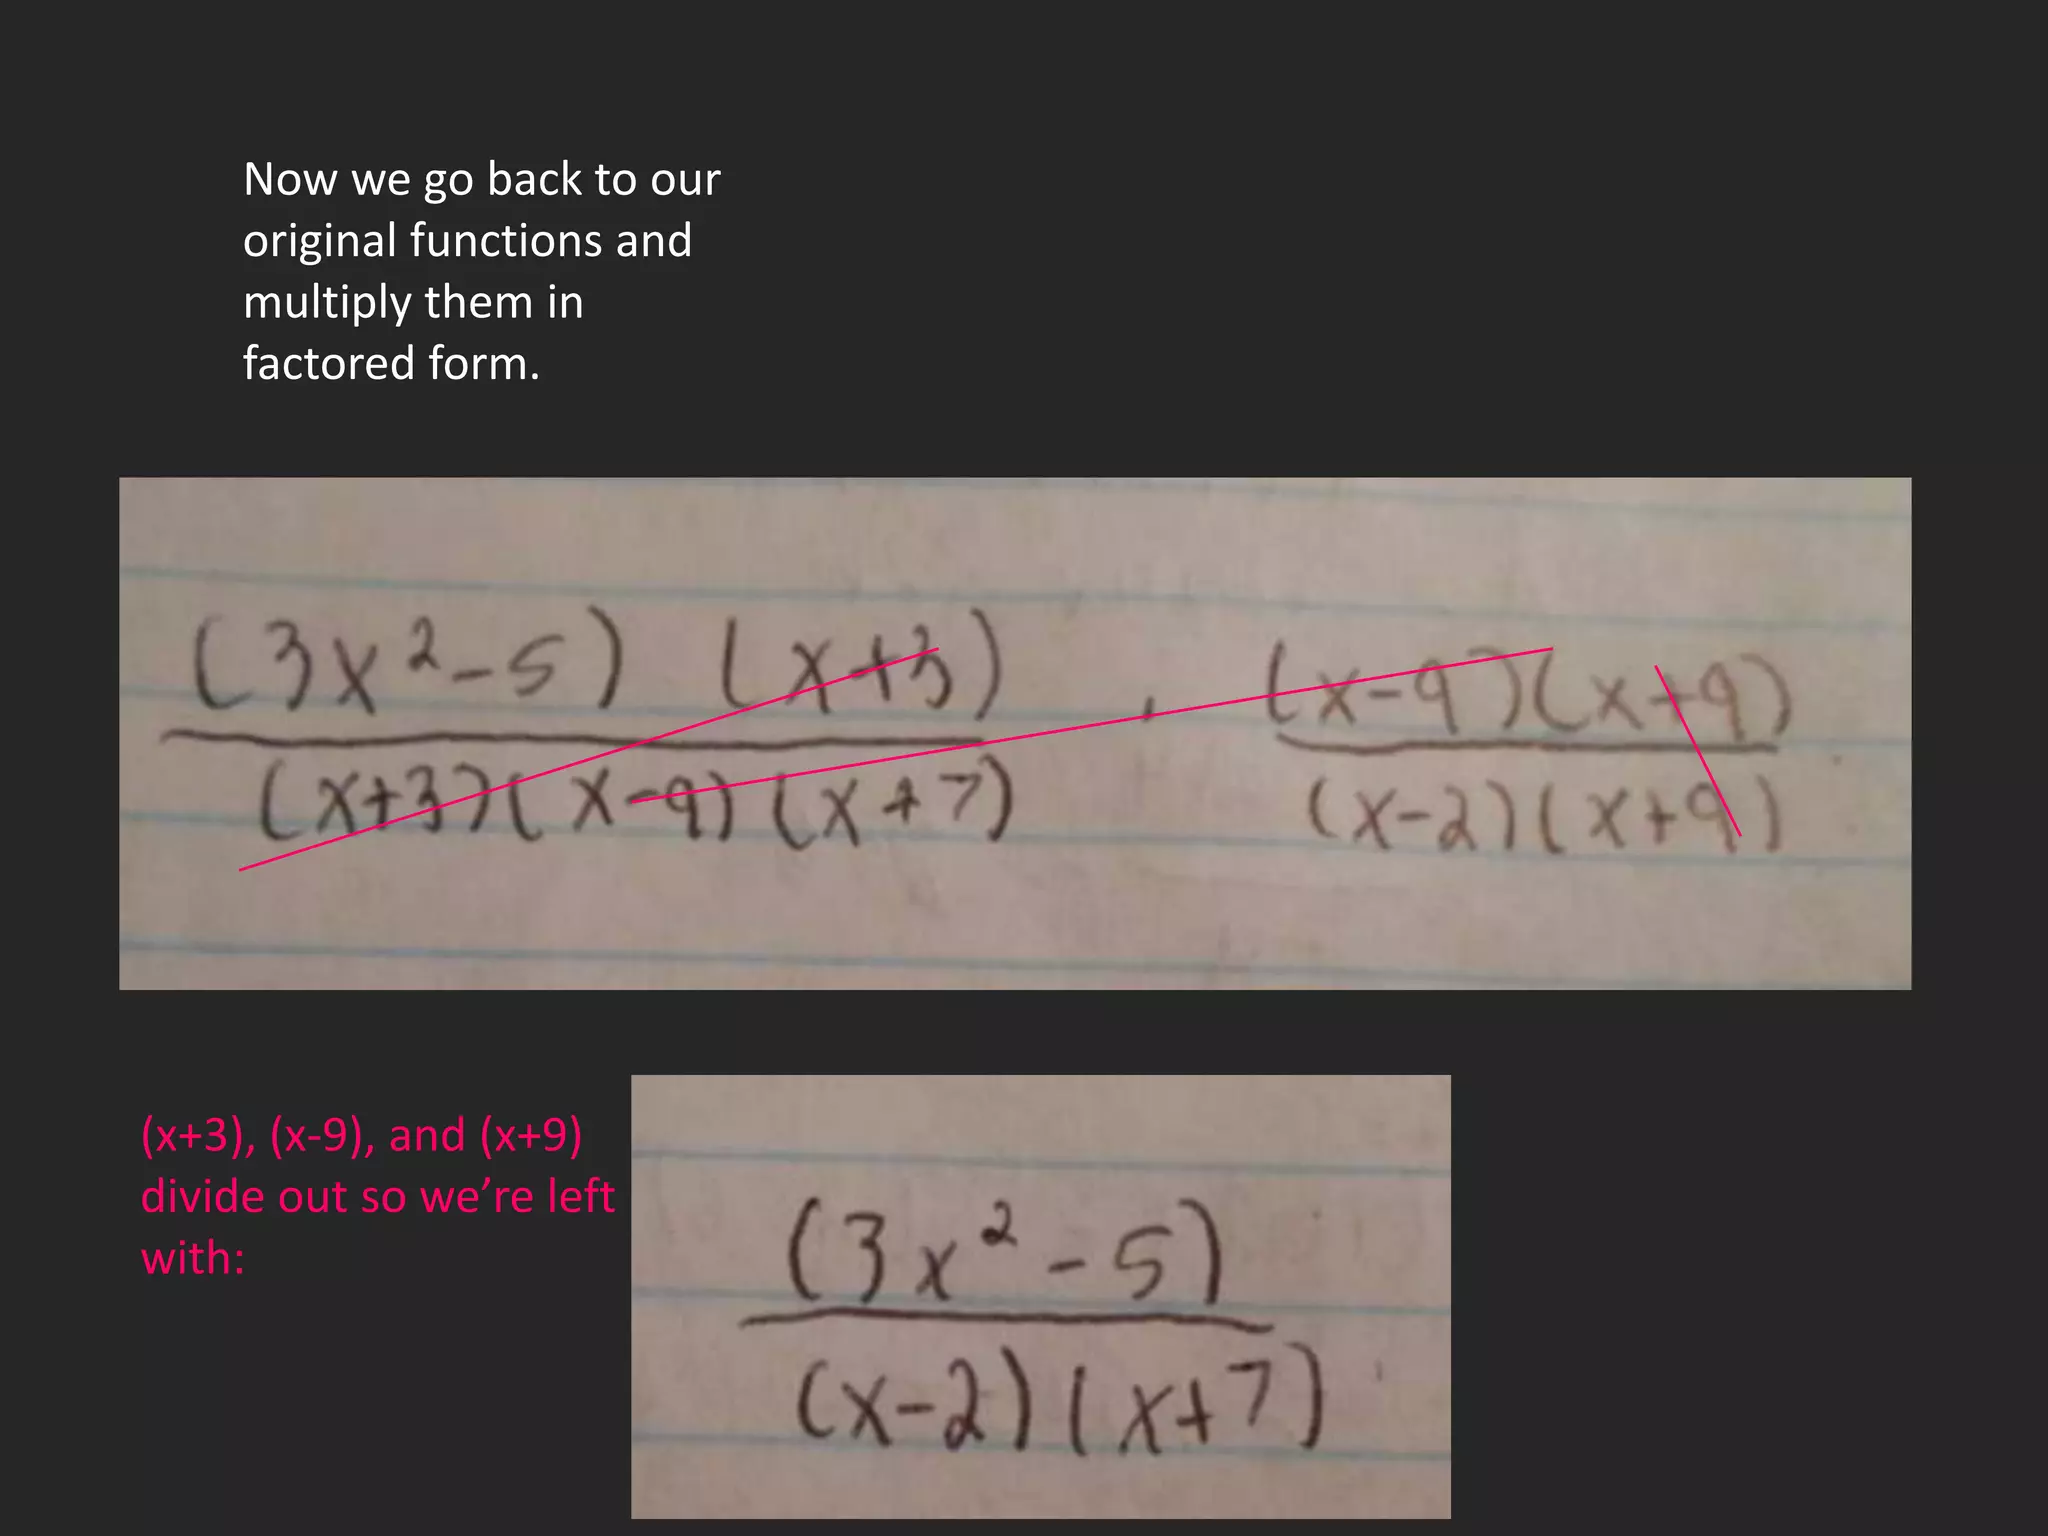 Now we go back to our
original functions and
multiply them in
factored form.
(3x²-5) (x+3) · (x-9)(x+9)
(x+3)(x-9)(x+7) (x-2)(x+9)
(x+3), (x-9), and (x+9)
divide out so we’re left
with:
(3x²-5)
(x-2)(x+7)